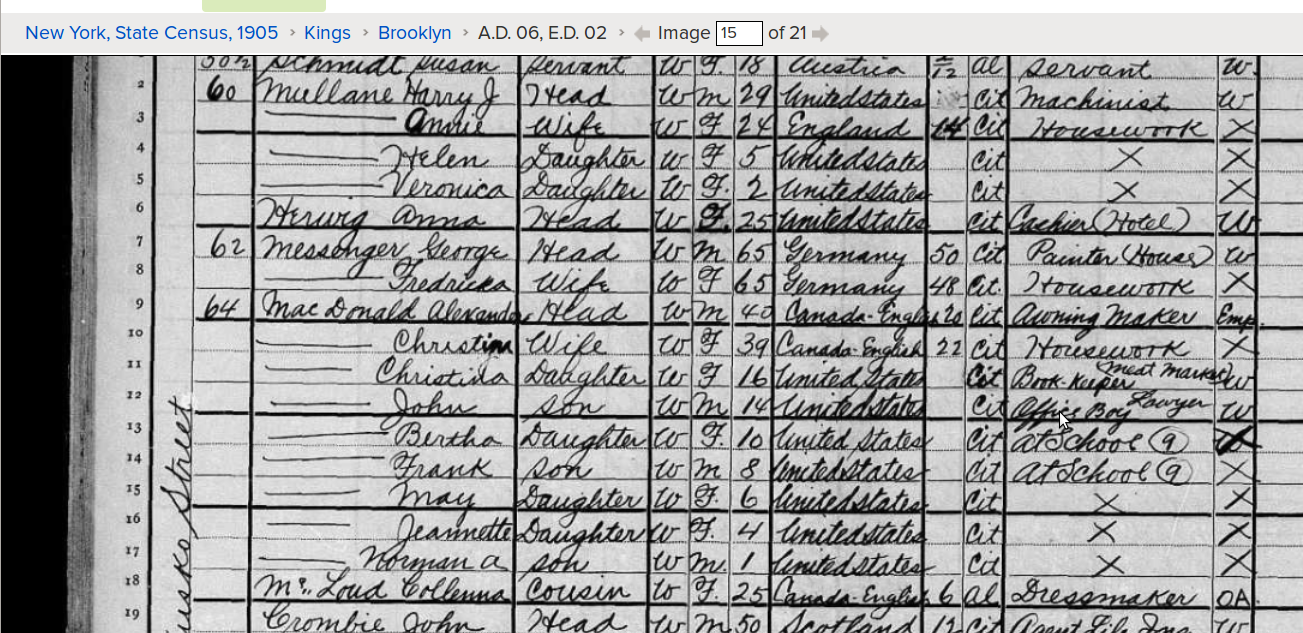 New York, State Census, 1905 › Kings › Brooklyn › A.D. 06, E.D. 02 › Image 15 of 21
Schmidt Susan Servant W F. 18 Austria 5/12 al Servant W.
2 60 Mullane Harry J Head W M 29 United States Cit Machinist W
3 Annie Wife W F 24 England 14 Cit Housework X
4 Helen Daughter W F 5 United States Cit X X
5 Veronica Daughter W F. 2 United States Cit X X
6 Herwig Anna Head W F. 25 United States Cit Cashier (Hotel) W
7 62 Messenger George Head W M 65 Germany 50 Cit Painter (House) W
8 Fredricka Wife W F 65 Germany 48 Cit. Housework X
9 64 Mac Donald Alexander Head W M 40 Canada-English 20 Cit Awning Maker Emp.
10 Christina Wife W F 39 Canada-English 22 Cit Housework X
11 Christina Daughter W F 16 United States Cit Book-Keeper Meat Market W
12 John Son W M 14 United States Cit Office Boy Lawyer W
13 Bertha Daughter W F. 10 United States Cit At School (9) X
14 Frank Son W M 8 United States Cit At School (9) X
15 May Daughter W F. 6 United States Cit X X
16 Jeannette Daughter W F. 4 United States Cit X X
17 Norman A Son W M. 1 United States Cit X X
18 Mc Loud Collenna Cousin W F. 25 Canada-English 6 al Dressmaker OA
19 Crombie John Head W M 50 Scotland Cit Agent W
Street